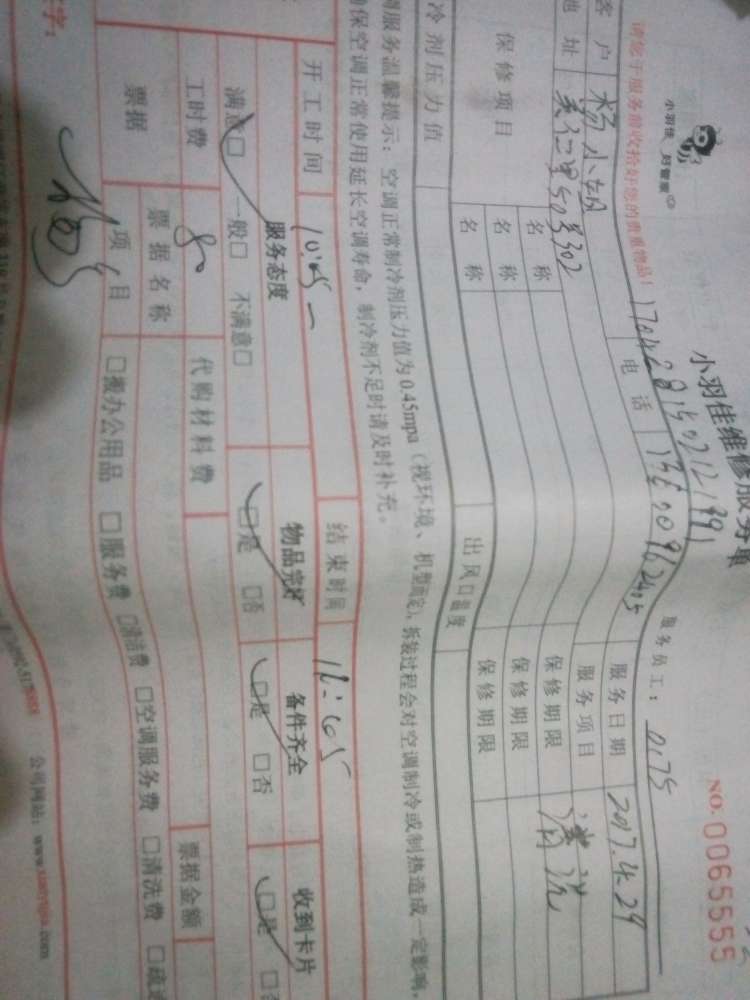 小羽佳维修服务单
NO.0065555
小羽佳 归管家
1704281502121991
服务员工：0175
请您于服务前收拾好您的贵重物品！
客户 杨小姐 电话 服务日期 2017.4.29
地址 美仁里50号302 服务项目 清洗
保修项目 名称 保修期限
名称 保修期限
名称 保修期限
冷剂压力值 出风口温度
调服务温馨提示：空调正常制冷剂压力值为0.45mpa（视环境、机型而定），拆装过程会对空调制冷或制热造成一定影响，
确保空调正常使用延长空调寿命，制冷剂不足时请及时补充。
开工时间 10:05 结束时间
服务态度 物品完好 备件齐全 收到卡片
满意□ 一般□ 不满意□ □是 □否 □是 □否 □是
工时费 80 代购材料费
票据 票据名称 票据金额
项目 □搬办公用品 □服务费 □清洁费 □空调服务费 □清洗费
字：
公司网站：